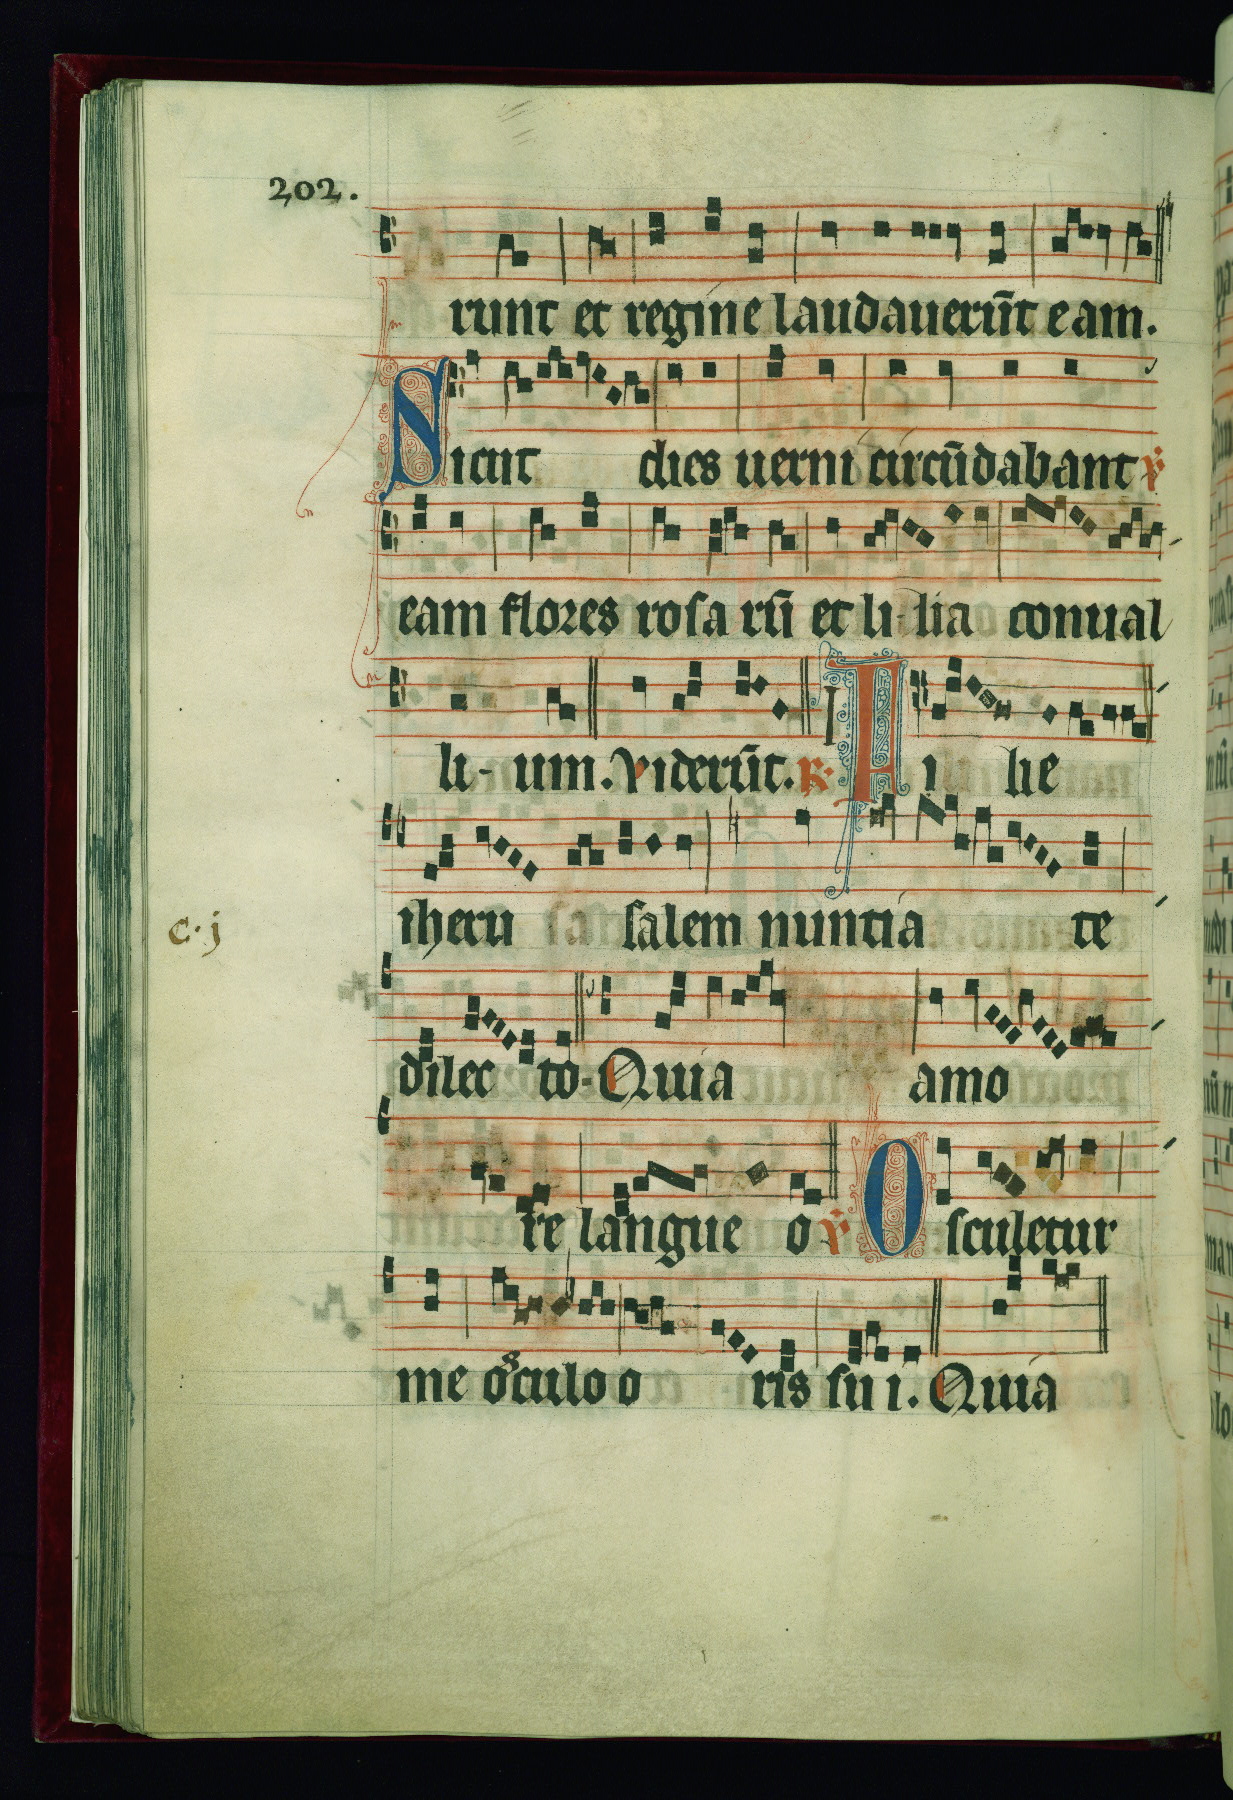 202.
runt et regine laudauerūt eam.
Sicut dies uerni circūdabant ℣
eam flores rosa rū et li-lia conual
li-um. Viderūt. ℟ Filie
iheru salem nuntia te
dilec to. Quia amo
re langue o ℣ Osculetur
me osculo o ris su i. Quia
c. j